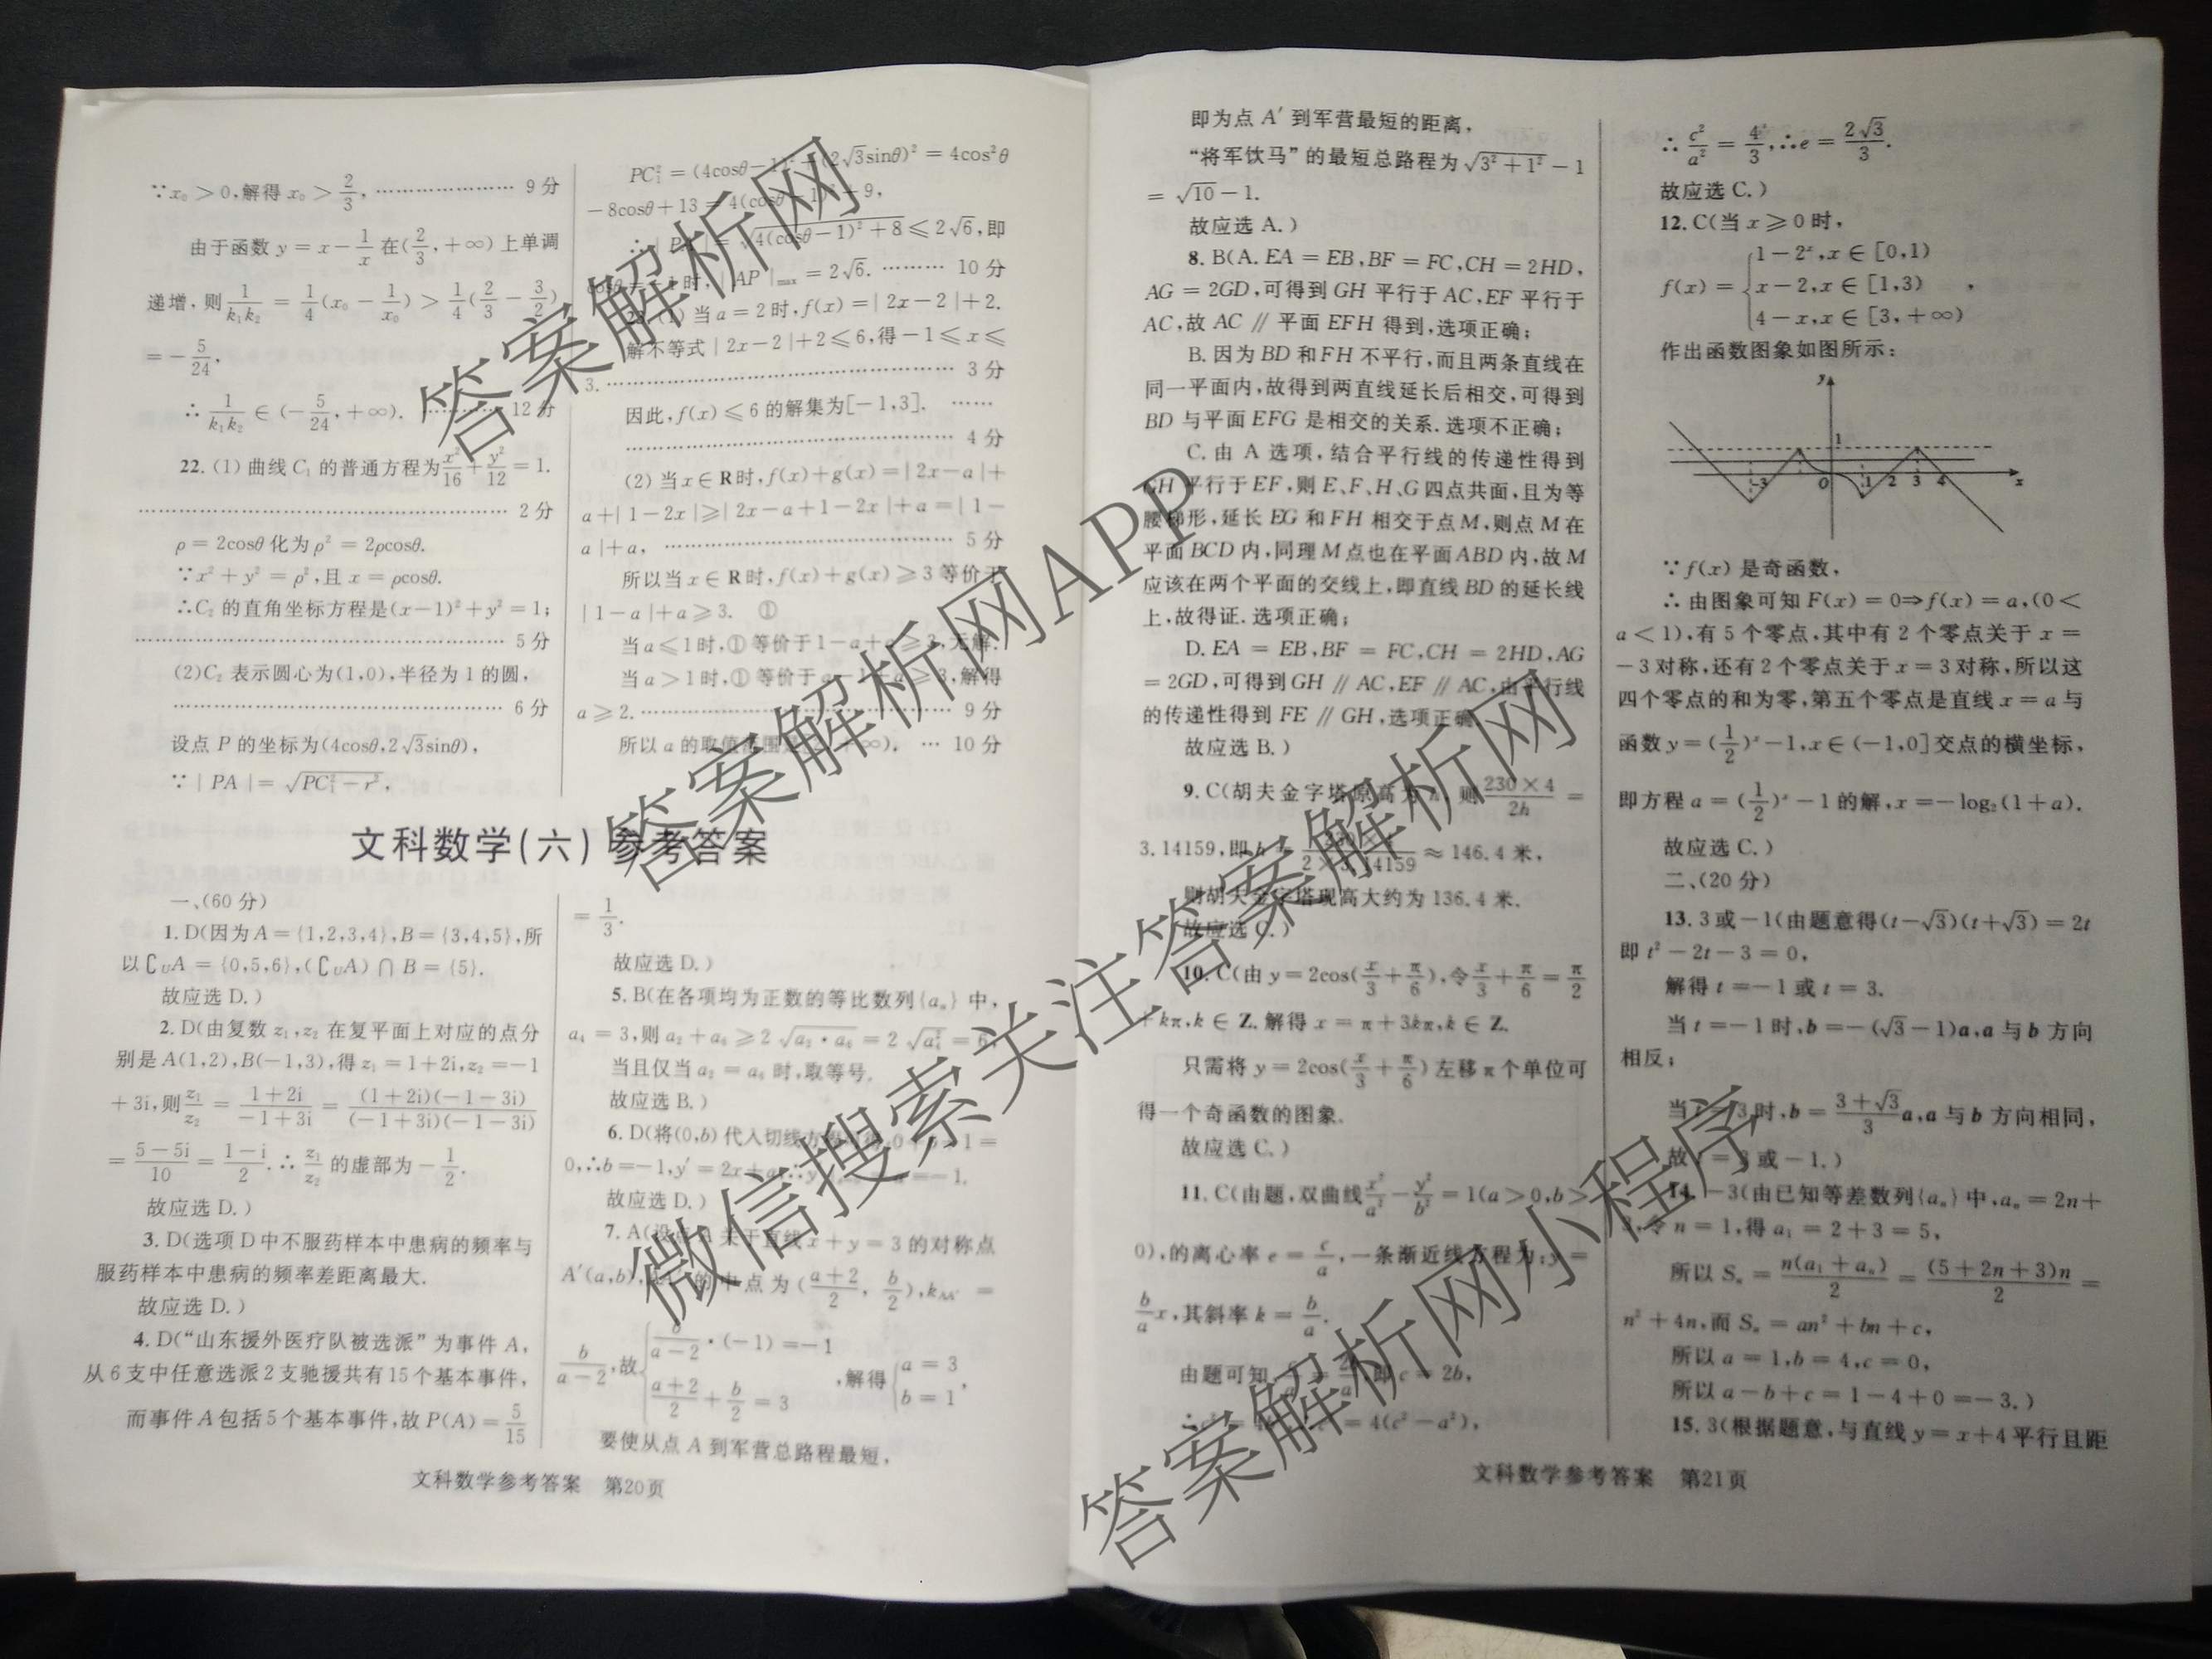 ∵x₀>0,解得x₀>2/3, …… 9分
由于函数y=x-1/x在(2/3,+∞)上单调
递增,则1/k₁k₂=1/4(x₀-1/x₀)>1/4(2/3-3/2)
=-5/24,
∴1/k₁k₂∈(-5/24,+∞). …… 12分
22.(1)曲线C₁的普通方程为x²/16+y²/12=1.
…… 2分
ρ=2cosθ化为ρ²=2ρcosθ.
∵x²+y²=ρ²,且x=ρcosθ.
∴C₂的直角坐标方程是(x-1)²+y²=1;
…… 5分
(2)C₂表示圆心为(1,0),半径为1的圆,
…… 6分
设点P的坐标为(4cosθ,2√3sinθ),
∵|PA|=√(PC₁²-r²),
PC₁²=(4cosθ-1)²+(2√3sinθ)²=4cos²θ
-8cosθ+13=4(cosθ-1)²+9,
∴|PA|=√(4(cosθ-1)²+8)≤2√6,即
cosθ=-1时,|AP|max=2√6. …… 10分
23.(1)当a=2时,f(x)=|2x-2|+2.
解不等式|2x-2|+2≤6,得-1≤x≤
3. …… 3分
因此,f(x)≤6的解集为[-1,3]. ……
…… 4分
(2)当x∈R时,f(x)+g(x)=|2x-a|+
a+|1-2x|≥|2x-a+1-2x|+a=|1-
a|+a, …… 5分
所以当x∈R时,f(x)+g(x)≥3等价于
|1-a|+a≥3. ①
当a≤1时,①等价于1-a+a≥3,无解.
当a>1时,①等价于a-1+a≥3,解得
a≥2. …… 9分
所以a的取值范围是[2,+∞). … 10分
文科数学(六)参考答案
一、(60分)
1.D(因为A={1,2,3,4},B={3,4,5},所
以∁UA={0,5,6},(∁UA)∩B={5}.
故应选D.)
2.D(由复数z₁,z₂在复平面上对应的点分
别是A(1,2),B(-1,3),得z₁=1+2i,z₂=-1
+3i,则z₁/z₂=(1+2i)/(-1+3i)=(1+2i)(-1-3i)/(-1+3i)(-1-3i)
=(5-5i)/10=(1-i)/2.∴z₁/z₂的虚部为-1/2.
故应选D.)
3.D(选项D中不服药样本中患病的频率与
服药样本中患病的频率差距离最大.
故应选D.)
4.D(“山东援外医疗队被选派”为事件A,
从6支中任意选派2支驰援共有15个基本事件,
而事件A包括5个基本事件,故P(A)=5/15
=1/3.
故应选D.)
5.B(在各项均为正数的等比数列{aₙ}中,
a₄=3,则a₂+a₆≥2√(a₂·a₆)=2√(a₄²)=6,
当且仅当a₂=a₆时,取等号.
故应选B.)
6.D(将(0,b)代入切线方程
0,∴b=-1,y′=2x+a,∴ =-1.
故应选D.)
7.A(设点A关于直线x+y=3的对称点
A′(a,b),AA′的中点为((a+2)/2, b/2),kAA′=
b/(a-2),故{b/(a-2)·(-1)=-1
(a+2)/2+b/2=3,解得{a=3
b=1,
要使从点A到军营总路程最短,
文科数学参考答案 第20页
即为点A′到军营最短的距离,
“将军饮马”的最短总路程为√(3²+1²)-1
=√10-1.
故应选A.)
8.B(A.EA=EB,BF=FC,CH=2HD,
AG=2GD,可得到GH平行于AC,EF平行于
AC,故AC∥平面EFH得到,选项正确;
B.因为BD和FH不平行,而且两条直线在
同一平面内,故得到两直线延长后相交,可得到
BD与平面EFG是相交的关系.选项不正确;
C.由A选项,结合平行线的传递性得到
GH平行于EF,则E、F、H、G四点共面,且为等
腰梯形,延长EG和FH相交于点M,则点M在
平面BCD内,同理M点也在平面ABD内,故M
应该在两个平面的交线上,即直线BD的延长线
上,故得证.选项正确;
D.EA=EB,BF=FC,CH=2HD,AG
=2GD,可得到GH∥AC,EF∥AC,由平行线
的传递性得到FE∥GH,选项正确.
故应选B.)
9.C(胡夫金字塔原高为h,则230×4/2h=
3.14159,即h=230×4/2×3.14159≈146.4米,
则胡夫金字塔现高大约为136.4米.
故应选C.)
10.C(由y=2cos(x/3+π/6),令x/3+π/6=π/2
+kπ,k∈Z.解得x=π+3kπ,k∈Z.
只需将y=2cos(x/3+π/6)左移π个单位可
得一个奇函数的图象.
故应选C.)
11.C(由题,双曲线x²/a²-y²/b²=1(a>0,b>
0),的离心率e=c/a,一条渐近线方程为:y=
b/a x,其斜率k=b/a.
由题可知, 即c=2b,
∴ =4(c²-a²),
∴c²/a²=4/3,∴e=2√3/3.
故应选C.)
12.C(当x≥0时,
f(x)={1-2ˣ,x∈[0,1)
x-2,x∈[1,3)
4-x,x∈[3,+∞),
作出函数图象如图所示:
y
1
-3 O 1 2 3 4 x
∵f(x)是奇函数,
∴由图象可知F(x)=0⇒f(x)=a,(0<
a<1),有5个零点,其中有2个零点关于x=
-3对称,还有2个零点关于x=3对称,所以这
四个零点的和为零,第五个零点是直线x=a与
函数y=(1/2)ˣ-1,x∈(-1,0]交点的横坐标,
即方程a=(1/2)ˣ-1的解,x=-log₂(1+a).
故应选C.)
二、(20分)
13.3或-1(由题意得(t-√3)(t+√3)=2t
即t²-2t-3=0,
解得t=-1或t=3.
当t=-1时,b=-(√3-1)a,a与b方向
相反;
当t=3时,b=(3+√3)/3 a,a与b方向相同,
故t=3或-1.)
14.-3(由已知等差数列{aₙ}中,aₙ=2n+
3,令n=1,得a₁=2+3=5,
所以Sₙ=n(a₁+aₙ)/2=(5+2n+3)n/2=
n²+4n,而Sₙ=an²+bn+c,
所以a=1,b=4,c=0,
所以a-b+c=1-4+0=-3.)
15.3(根据题意,与直线y=x+4平行且距
文科数学参考答案 第21页
答案解析网
答案解析网APP
微信搜索关注答案解析网
答案解析网小程序